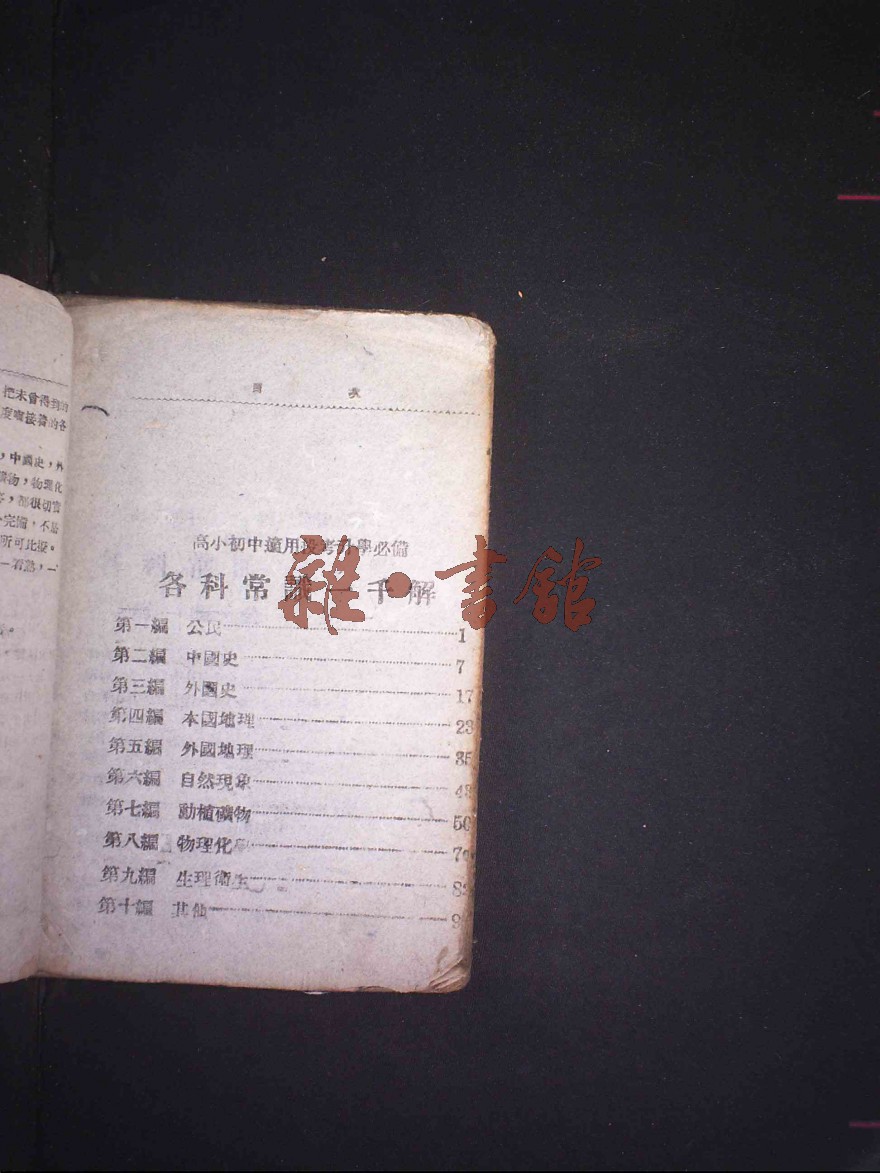 把未曾得到的
中國史，外
礦物，物理化
都很切實
完備，不是
所可比擬。
一看熟，一
目 次
高小初中適用投考升學必備
各科常識一千解
第一編 公民 1
第二編 中國史 7
第三編 外國史 17
第四編 本國地理 23
第五編 外國地理 35
第六編 自然現象 43
第七編 動植礦物 50
第八編 物理化學
第九編 生理衛生 82
第十編 其他
雜·書館